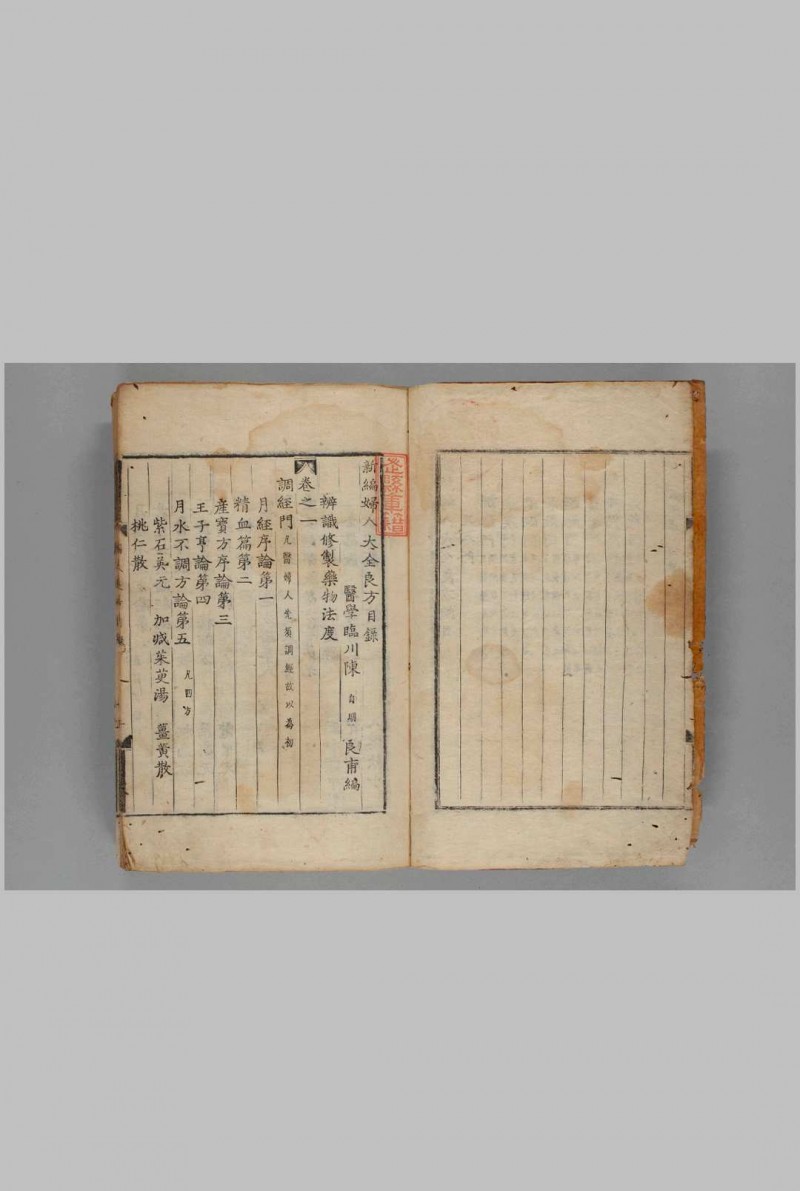 新編婦人大全良方目錄
醫學臨川陳 自明 良甫編
辨識修製藥物法度
卷之一
調經門 凡醫婦人先須調經故以為初
月經序論第一
精血篇第二
產寶方序論第三
王子亨論第四
月水不調方論第五 凡四方
紫石英元 加減茱萸湯 薑黃散
桃仁散